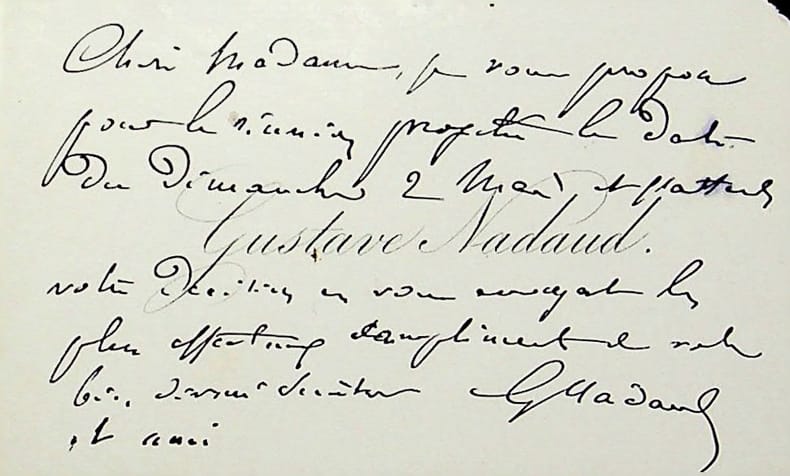 Chère Madame, je vous propose
pour la réunion projetée la date
du Dimanche 2 Mars et j'attends
Gustave Nadaud.
votre décision en vous envoyant les
plus affectueux compliments de votre
bien dévoué serviteur GNadaud
et ami